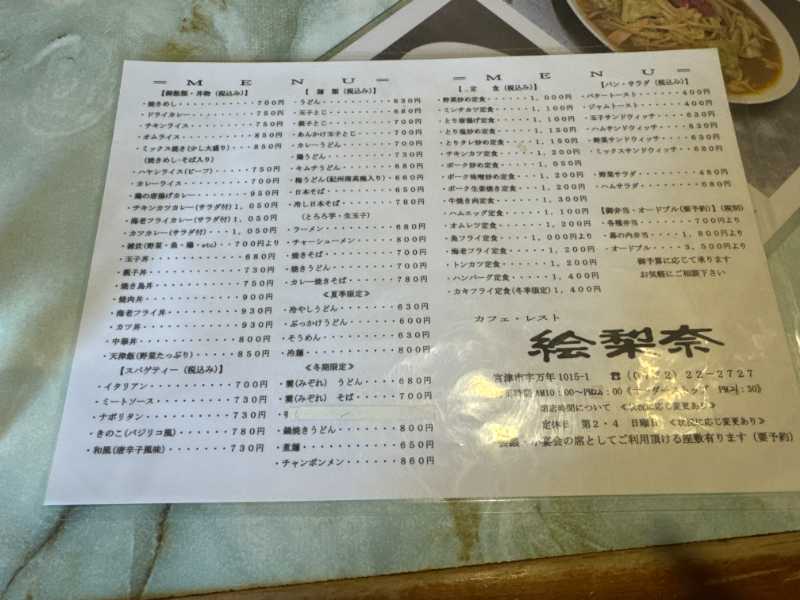 =MENU=
【御飯類・丼物（税込み）】
・焼きめし・・・・・・・・・・・700円
・ドライカレー・・・・・・・・・750円
・チキンライス・・・・・・・・・750円
・オムライス・・・・・・・・・・850円
・ミックス焼き(かし大盛り)・・・850円
(焼きめし・そば入り)
・ハヤシライス(ビーフ)・・・・・750円
・カレーライス・・・・・・・・・700円
・鶏の唐揚げカレー・・・・・・・950円
・チキンカツカレー(サラダ付)1,050円
・海老フライカレー(サラダ付)1,050円
・カツカレー(サラダ付)・・・1,050円
・雑炊(野菜・魚・鶏・etc)・・700円より
・玉子丼・・・・・・・・・・・・680円
・親子丼・・・・・・・・・・・・730円
・焼き鳥丼・・・・・・・・・・・750円
・焼肉丼・・・・・・・・・・・・900円
・海老フライ丼・・・・・・・・・930円
・カツ丼・・・・・・・・・・・・930円
・中華丼・・・・・・・・・・・・800円
・天津飯(野菜たっぷり)・・・・・850円
【スパゲティー（税込み）】
・イタリアン・・・・・・・・・・700円
・ミートソース・・・・・・・・・730円
・ナポリタン・・・・・・・・・・730円
・きのこ(バジリコ風)・・・・・・780円
・和風(唐辛子風味)・・・・・・・730円
【麺類（税込み）】
・うどん・・・・・・・・・・630円
・玉子とじ・・・・・・・・・680円
・親子とじ・・・・・・・・・700円
・あんかけ玉子とじ・・・・・700円
・カレーうどん・・・・・・・700円
・鶏うどん・・・・・・・・・650円
・キムチうどん・・・・・・・680円
・梅うどん(紀州南高梅入り)・660円
・日本そば・・・・・・・・・650円
・冷し日本そば・・・・・・・780円
(とろろ芋・生玉子)
・ラーメン・・・・・・・・・680円
・チャーシューメン・・・・・800円
・焼きそば・・・・・・・・・700円
・焼きうどん・・・・・・・・700円
・カレー焼きそば・・・・・・780円
≪夏季限定≫
・冷やしうどん・・・・・・・630円
・ぶっかけうどん・・・・・・600円
・そうめん・・・・・・・・・630円
・冷麺・・・・・・・・・・・800円
≪冬期限定≫
・霙(みぞれ)うどん・・・・・680円
・霙(みぞれ)そば・・・・・・700円
・鍋焼きうどん・・・・・・・800円
・煮麺・・・・・・・・・・・650円
・チャンポンメン・・・・・・860円
=MENU=
【定食（税込み）】
・野菜炒め定食・・・・・1,000円
・ミンチカツ定食・・・・1,100円
・とり唐揚げ定食・・・・1,100円
・とり塩炒め定食・・・・1,150円
・とりタレ炒め定食・・・1,150円
・チキンカツ定食・・・・1,200円
・ポーク炒め定食・・・・1,050円
・ポーク味噌炒め定食・・1,200円
・ポーク生姜焼き定食・・1,200円
・牛焼き肉定食・・・・・1,300円
・ハムエッグ定食・・・・1,100円
・オムレツ定食・・・・・1,200円
・魚フライ定食・・・・・1,000円より
・海老フライ定食・・・・1,200円
・トンカツ定食・・・・・1,200円
・ハンバーグ定食・・・・1,200円
・カキフライ定食(冬季限定)1,400円
【パン・サラダ（税込み）】
・バタートースト・・・・・400円
・ジャムトースト・・・・・400円
・玉子サンドウィッチ・・・630円
・ハムサンドウィッチ・・・630円
・野菜サンドウィッチ・・・630円
・ミックスサンドウィッチ・・680円
・野菜サラダ・・・・・・・480円
・ハムサラダ・・・・・・・680円
【御弁当・オードブル(要予約)】(税別)
・各種弁当・・・・・・・700円より
・幕の内弁当・・・・・1,800円より
・オードブル・・・・・3,500円より
御予算に応じて承ります
お気軽にご相談下さい
カフェ・レスト
絵梨奈
宮津市字万年1015-1 ☎(0772)22-2727
AM10:00～PM
閉店時間について ≪状況に応じ変更あり≫
定休日 第2・4 日曜日 ≪状況に応じ変更あり≫
小宴会の席としてご利用頂ける座敷有ります(要予約)